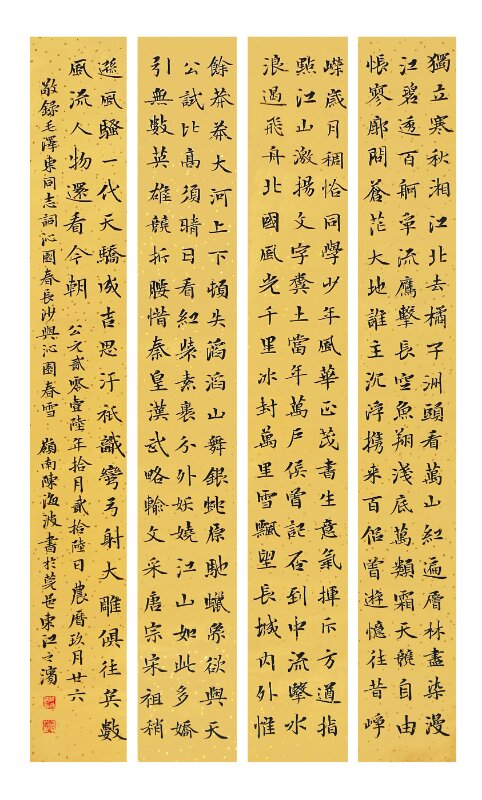 獨立寒秋湘江北去橘子洲頭看萬山紅遍層林盡染漫
江碧透百舸爭流鷹擊長空魚翔淺底萬類霜天競自由
悵寥廓問蒼茫大地誰主沉浮携来百侶曾遊憶往昔崢
嶸歲月稠恰同學少年風華正茂書生意氣揮斥方遒指
點江山激揚文字糞土當年萬戶侯曾記否到中流擊水
浪遏飛舟北國風光千里冰封萬里雪飄望長城內外惟
餘莽莽大河上下頓失滔滔山舞銀蛇原馳蠟象欲與天
公試比高須晴日看紅裝素裹分外妖嬈江山如此多嬌
引無數英雄競折腰惜秦皇漢武略輸文采唐宗宋祖稍
遜風騷一代天驕成吉思汗祇識彎弓射大雕俱往矣數
風流人物還看今朝 公元貳零壹陸年拾月貳拾陸日農曆玖月廿六
敬錄毛澤東同志詞沁園春長沙與沁園春雪 嶺南陳海波書於莞邑東江之濱